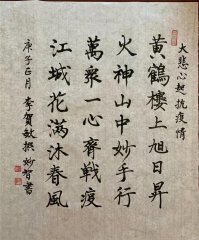 大悲心起抗疫情
黄鶴樓上旭日昇
火神山中妙手行
萬衆一心齊戰疫
江城花滿沐春風
庚子正月 李賀敏撰 妙智書